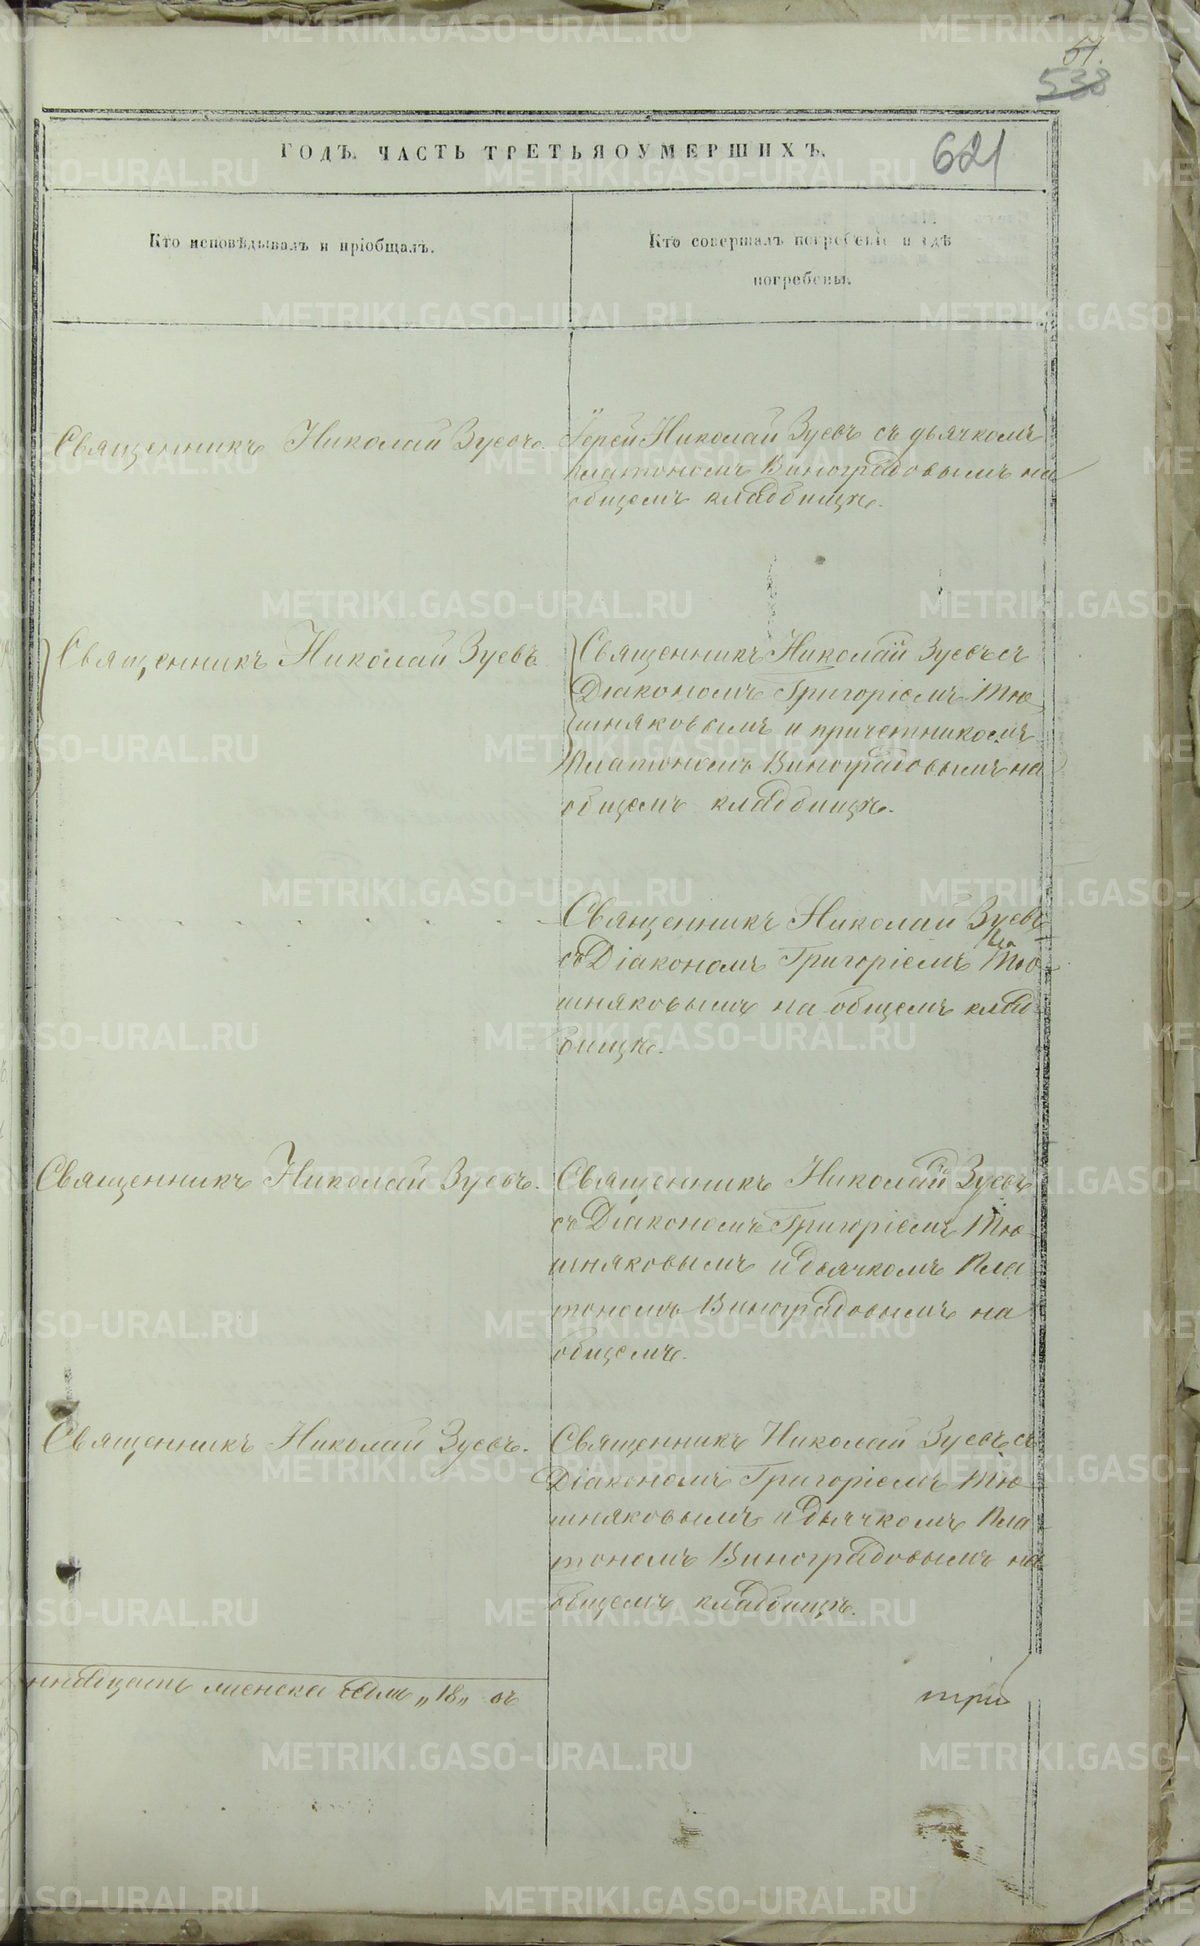 51.
538
621
ГОДЪ. ЧАСТЬ ТРЕТЬЯ О УМЕРШИХЪ.
Кто исповѣдывалъ и пріобщалъ.
Кто совершалъ погребеніе и гдѣ
погребены.
Священникъ Николай Зуевъ.
Іерей Николай Зуевъ съ дьячкомъ
Платономъ Виноградовымъ на
общемъ кладбищѣ.
Священникъ Николай Зуевъ
Священникъ Николай Зуевъ съ
Діакономъ Григоріемъ Тю
шняковымъ и причетникомъ
Платономъ Виноградовымъ на
общемъ кладбищѣ.
Священникъ Николай Зуевъ
съ Діакономъ Григоріемъ Тю
шняковымъ на общемъ клад
бищѣ.
Священникъ Николай Зуевъ.
Священникъ Николай Зуевъ
съ Діакономъ Григоріемъ Тю
шняковымъ и дьячкомъ Пла
тономъ Виноградовымъ на
общемъ.
Священникъ Николай Зуевъ.
Священникъ Николай Зуевъ съ
Діакономъ Григоріемъ Тю
шняковымъ и дьячкомъ Пла
тономъ Виноградовымъ на
общемъ кладбищѣ.
женска „18„
три
METRIKI.GASO-URAL.RU